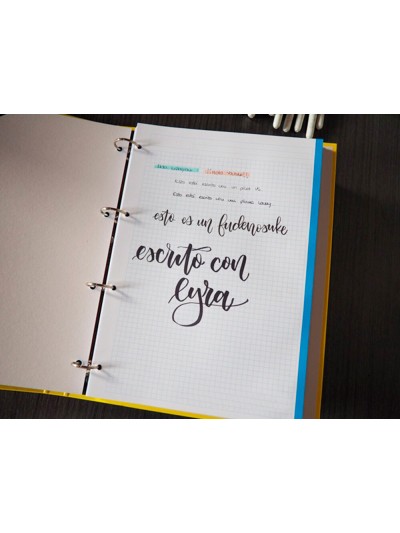 esto está escrito con un pilot
esto está escrito con una
esto es un fudenosuke
escrito con
lyra